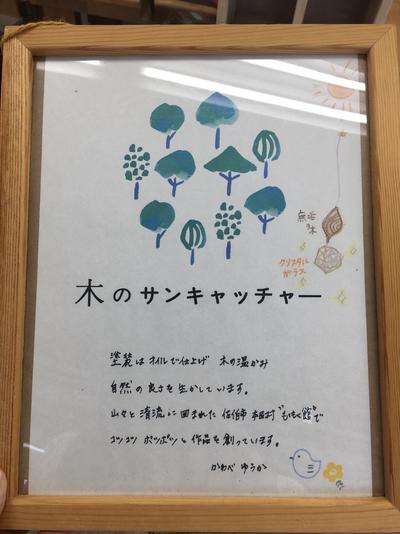 無垢の木
クリスタル
ガラス
木のサンキャッチャー
塗装はオイルで仕上げ 木の温かみ
自然の良さを生かしています。
山々と清流に囲まれた佐伯市 本匠村 "もくもく館"で
コツコツ ポツポツと作品を創っています。
かわべ ゆうか